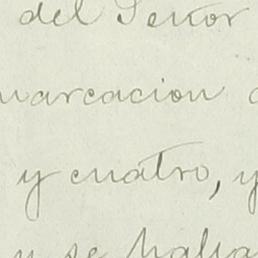 del Señor
marcacion
y cuatro, y
y se halla